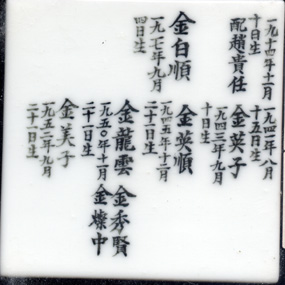 一九一四年十一月
十日生
配趙貴任
金白順
一九一七年九月
四日生
一九四一年八月
十五日生
金英子
一九四三年九月
十日生
金英順
一九四五年十二月
二十一日生
金龍雲
一九五〇年十一月
二十一日生
金美子
一九五二年九月
二十一日生
金秀賢
金燦中